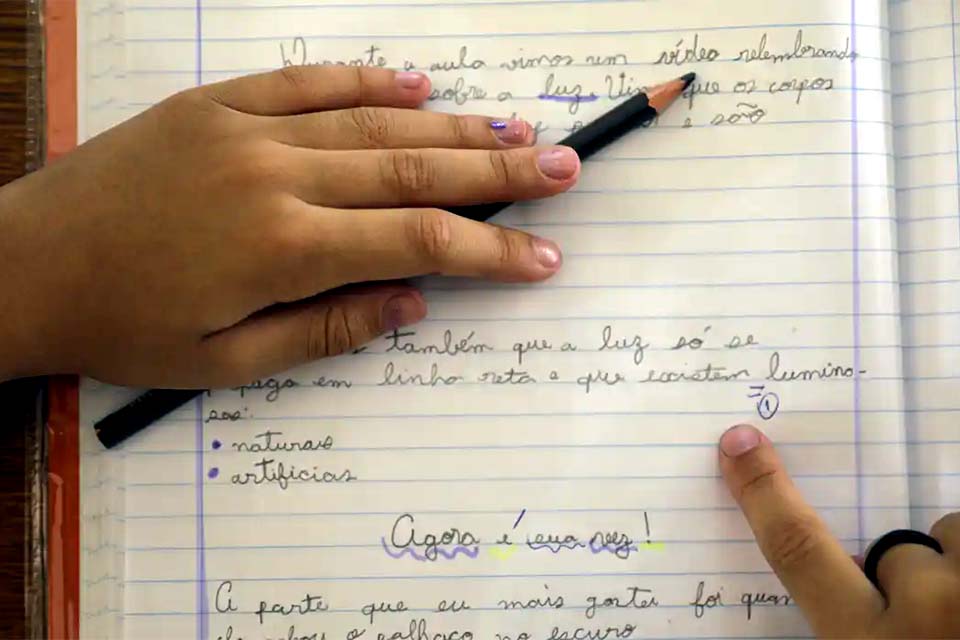 Durante a aula vimos um vídeo relembrando
sobre a luz. que os corpos
e são
também que a luz só se
em linha reta e que existem lumino-
sos:
①
• naturais
• artificias
Agora é sua vez!
A parte que eu mais gostei foi quan
o palhaço no escuro